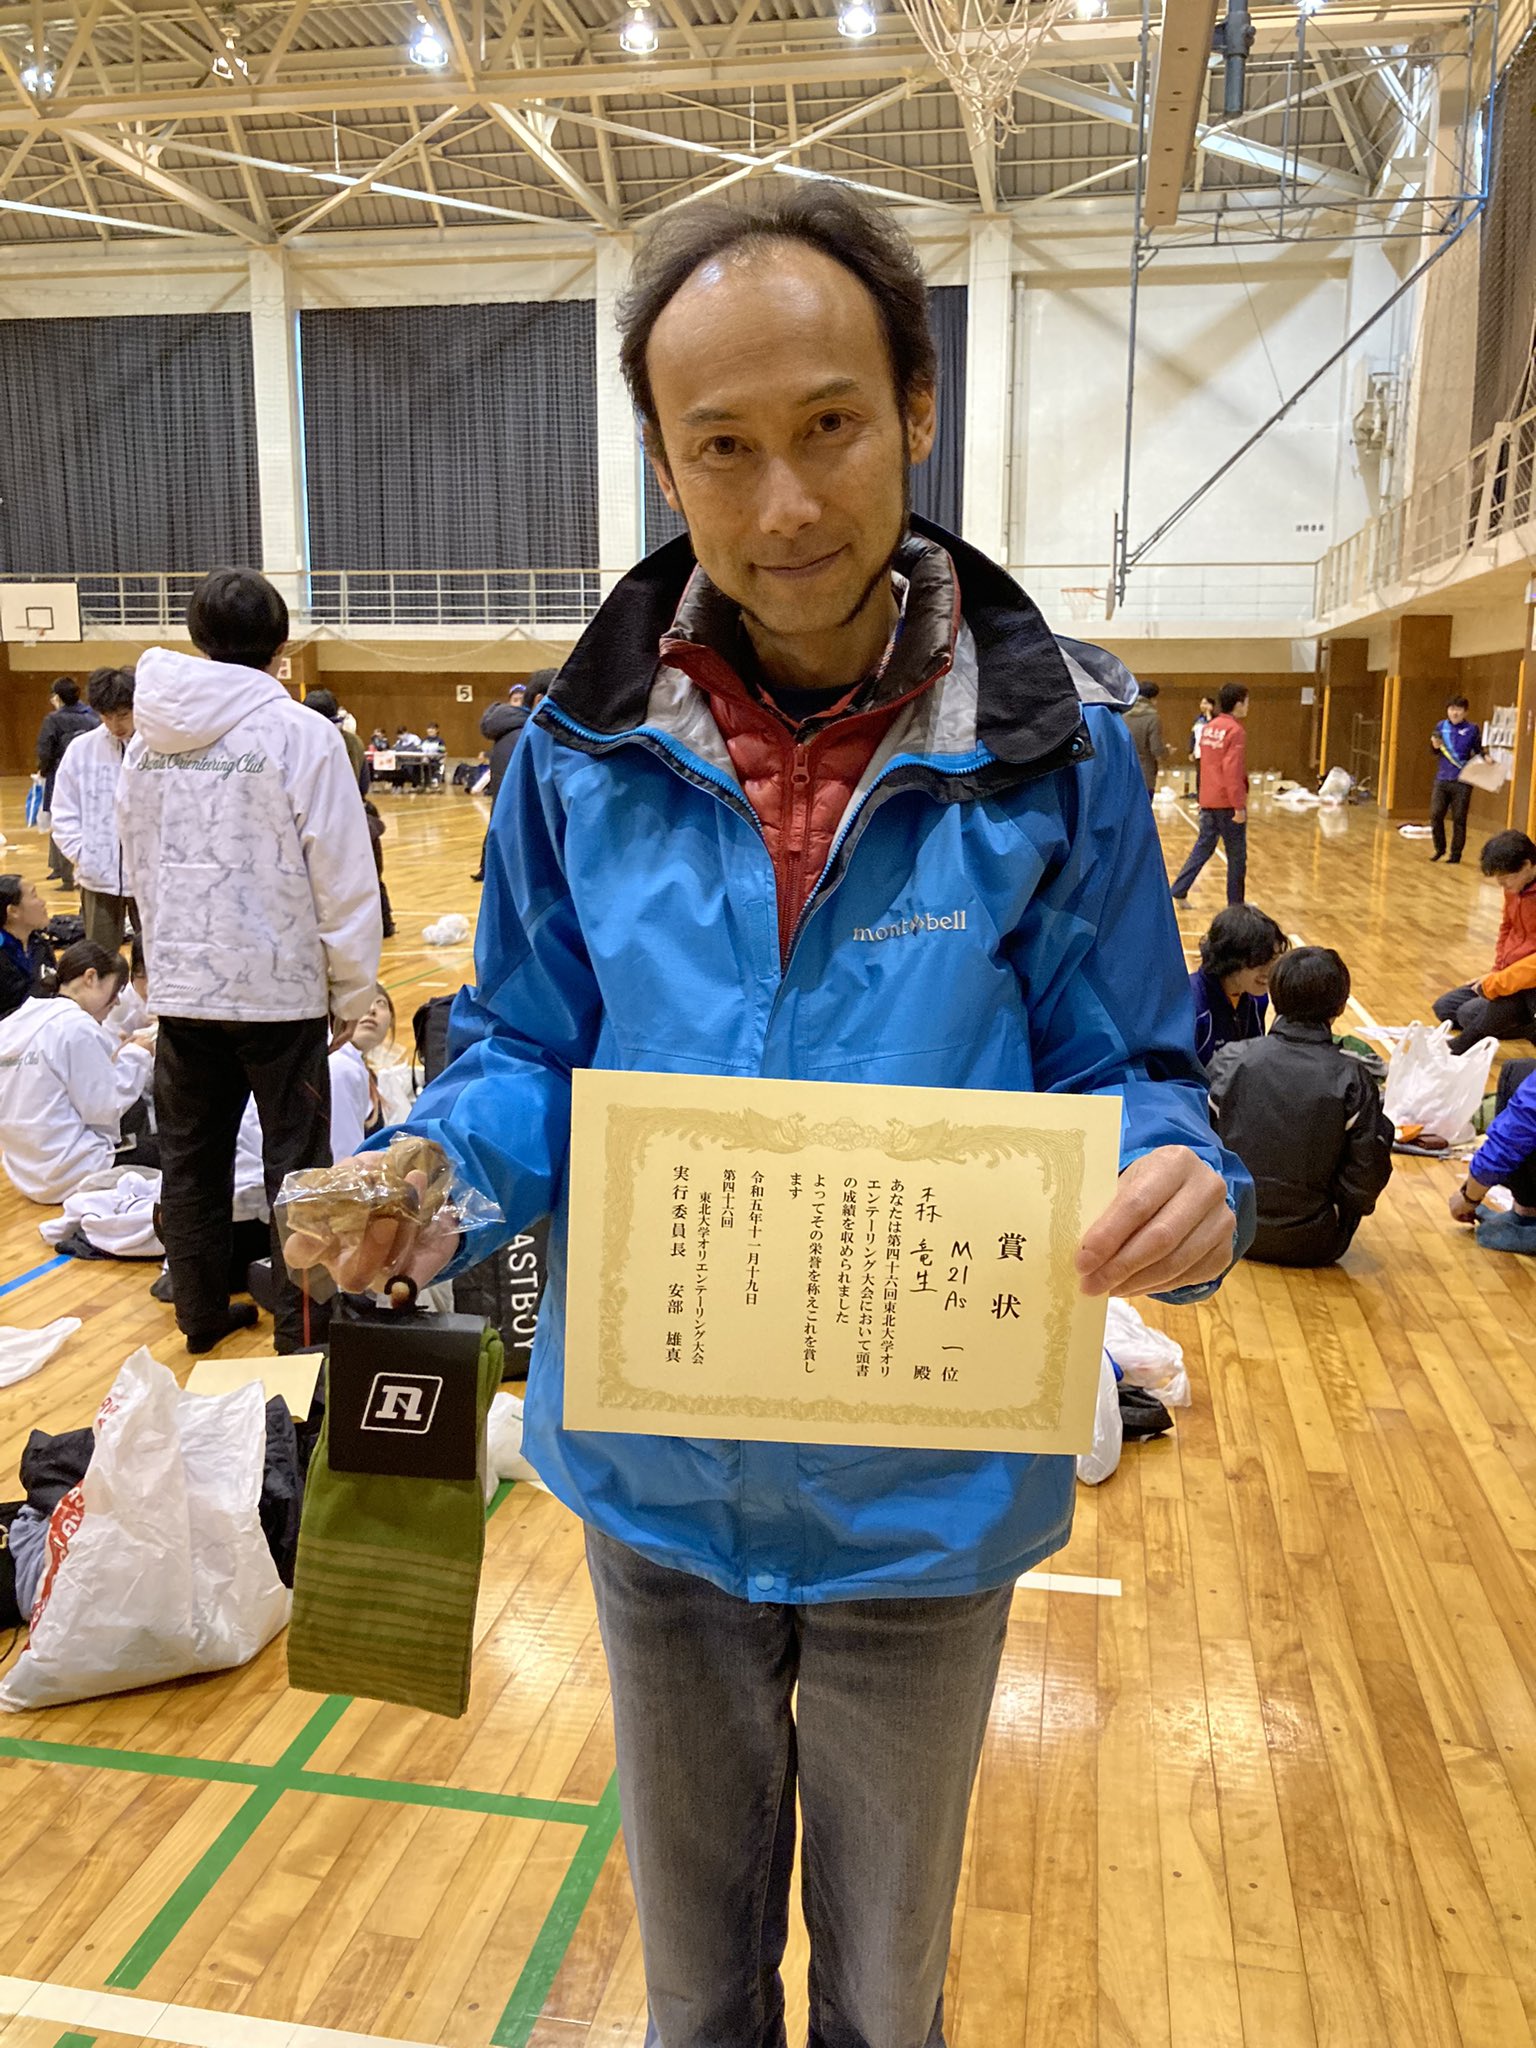 賞状
M21As 一位
森 竜生 殿
あなたは第四十六回東北大学オリ
エンテーリング大会において頭書
の成績を収められました
よってその栄誉を称えこれを賞し
ます
令和五年十一月十九日
第四十六回
東北大学オリエンテーリング大会
実行委員長 安部 雄真
mont bell
Orienteering Club
5
ASTBOY
n